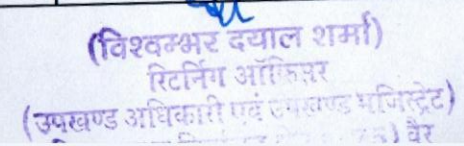 (विश्वम्भर दयाल शर्मा)
रिटर्निंग ऑफिसर
(उपखण्ड अधिकारी एवं उपखण्ड मजिस्ट्रेट)
) वैर